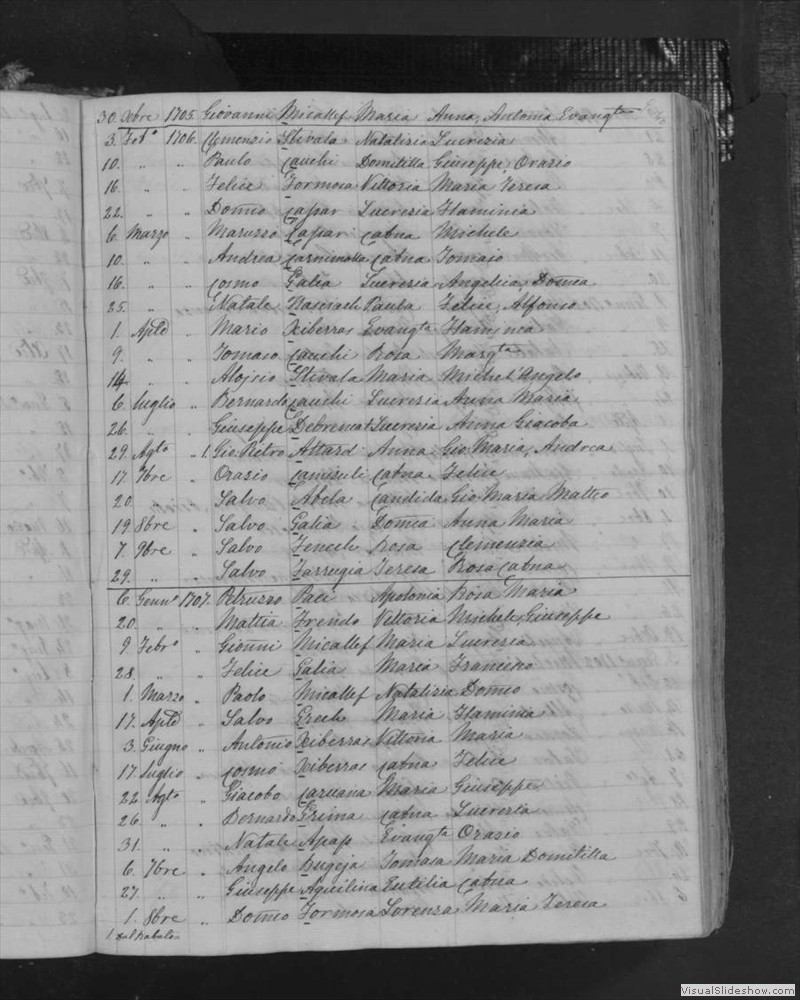 30. Octbre 1705. Giovanni Micallef Maria Anna, Antonia Evangta
3. Feb.o 1706. Clemenzio Stivala Natalizia Lucrezia
10. " " Paulo Cauchi Domitilla Giuseppe, Orazio
16. " " Felice Formosa Vittoria Maria Teresa
22. " " Domco Caspar Lucrezia Flaminia
6. Marzo " Maruzzo Caspar Catna Michele
10. " " Andrea Catna Tomaso
16. " " Cosmo Galia Lucrezia Angelica, Domca
25. " " Natale Paula Felice, Alfonso
1. Aple " Mario Xiberras Evangta Flaminea
9. " " Tomaso Cauchi Rosa Margta
14. " " Alojsio Stivala Maria Michel'Angelo
6. luglio " Bernardo Cauchi Lucrezia Anna Maria
26. " " Giuseppe Debremat Lucrezia Anna Giacoba
29. Agto " 1. Gio.Pietro Attard Anna Gio.Maria, Andrea
17. 7bre " Orazio Camisuli Catna Felice
20. " " Salvo Abela Candida Gio.Maria Matteo
19. 8bre " Salvo Galia Domca Anna Maria
7. 9bre " Salvo Fenech Rosa Clemenzia
29. " " Salvo Farrugia Teresa Rosa Catna
6. Genn.o 1707. Petruzzo Paci Apolonia Rosa Maria
20. " " Mattia Frendo Vittoria Michele, Giuseppe
9 Febr.o " Gionni Micallef Maria Lucrezia
28. " " Felice Galia Maria Francesco
1. Marzo " Paolo Micallef Natalizia Domco
17. Aple " Salvo Grech Maria Flaminia
3. Giugno " Antonio Xiberras Vittoria Maria
17. luglio " Cosmo Xiberras Catna Felice
22. Agto " Giacobo Caruana Maria Giuseppe
26. " " Bernardo Grima Catna Lucrezia
31. " " Natale Apap Evangta Orazio
6. 7bre " Angelo Bugeja Tomasa Maria Domitilla
27. " " Giuseppe Aquilina Eutilia Catna
1. 8bre " Domco Formosa Lorenza Maria Teresa
1. dal Rabato
VisualSlideshow.com